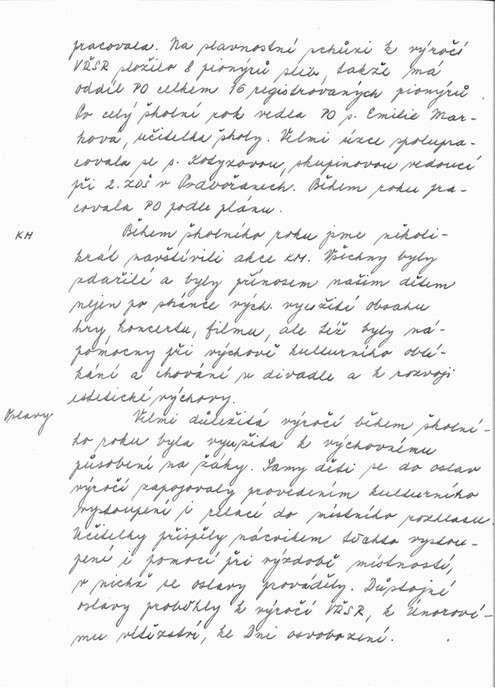 pracovala. Na slavnostní schůzi k výročí
VŘSR složilo 8 pionýrů slib, takže má
oddíl PO celkem 16 registrovaných pionýrů.
Po celý školní rok vedla PO s. Emilie Mar-
ková, učitelka školy. Velmi úzce spolupra-
covala se s. Kozyzovou, skupinovou vedoucí
při 2. ZDŠ v Podbořanech. Během roku pra-
covala PO podle plánu.
KH Během školního roku jsme několi-
krát navštívili akce KH. Všechny byly
zdařilé a byly přínosem našim dětem
nejen po stránce vých. využití obsahu
hry, koncertu, filmu, ale též byly ná-
pomocny při výchově kulturního oblé-
kání a chování v divadle a k rozvoji
estetické výchovy.
Oslavy Velmi důležitá výročí během školní-
ho roku byla využita k výchovnému
působení na žáky. Samy děti se do oslav
výročí zapojovaly provedením kulturního
vystoupení i relací do místního rozhlasu.
Učitelky přispěly nácvikem těchto vystou-
pení i pomocí při výzdobě místností,
v nichž se oslavy prováděly. Důstojné
oslavy proběhly k výročí VŘSR, k Únorové-
mu vítězství, ke Dni osvobození.